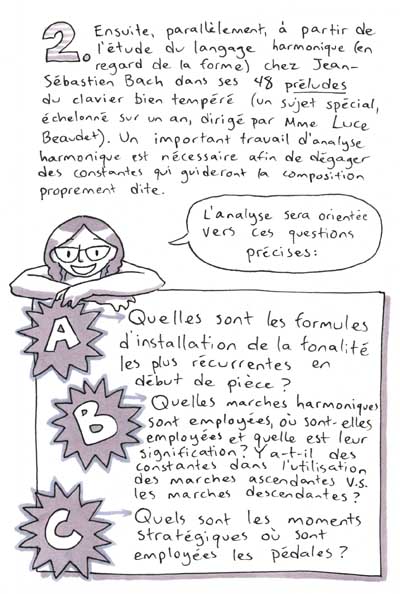 2. Ensuite, parallèlement, à partir de
l'étude du langage harmonique (en
regard de la forme) chez Jean-
Sébastien Bach dans ses 48 préludes
du clavier bien tempéré (un sujet spécial,
échelonné sur un an, dirigé par Mme Luce
Beaudet). Un important travail d'analyse
harmonique est nécessaire afin de dégager
des constantes qui guideront la composition
proprement dite.
L'analyse sera orientée
vers ces questions
précises:
A
Quelles sont les formules
d'installation de la tonalité
les plus récurrentes en
début de pièce ?
B
Quelles marches harmoniques
sont employées, où sont-elles
employées et quelle est leur
signification? Y a-t-il des
constantes dans l'utilisation
des marches ascendantes V.S.
les marches descendantes ?
C
Quels sont les moments
stratégiques où sont
employées les pédales ?